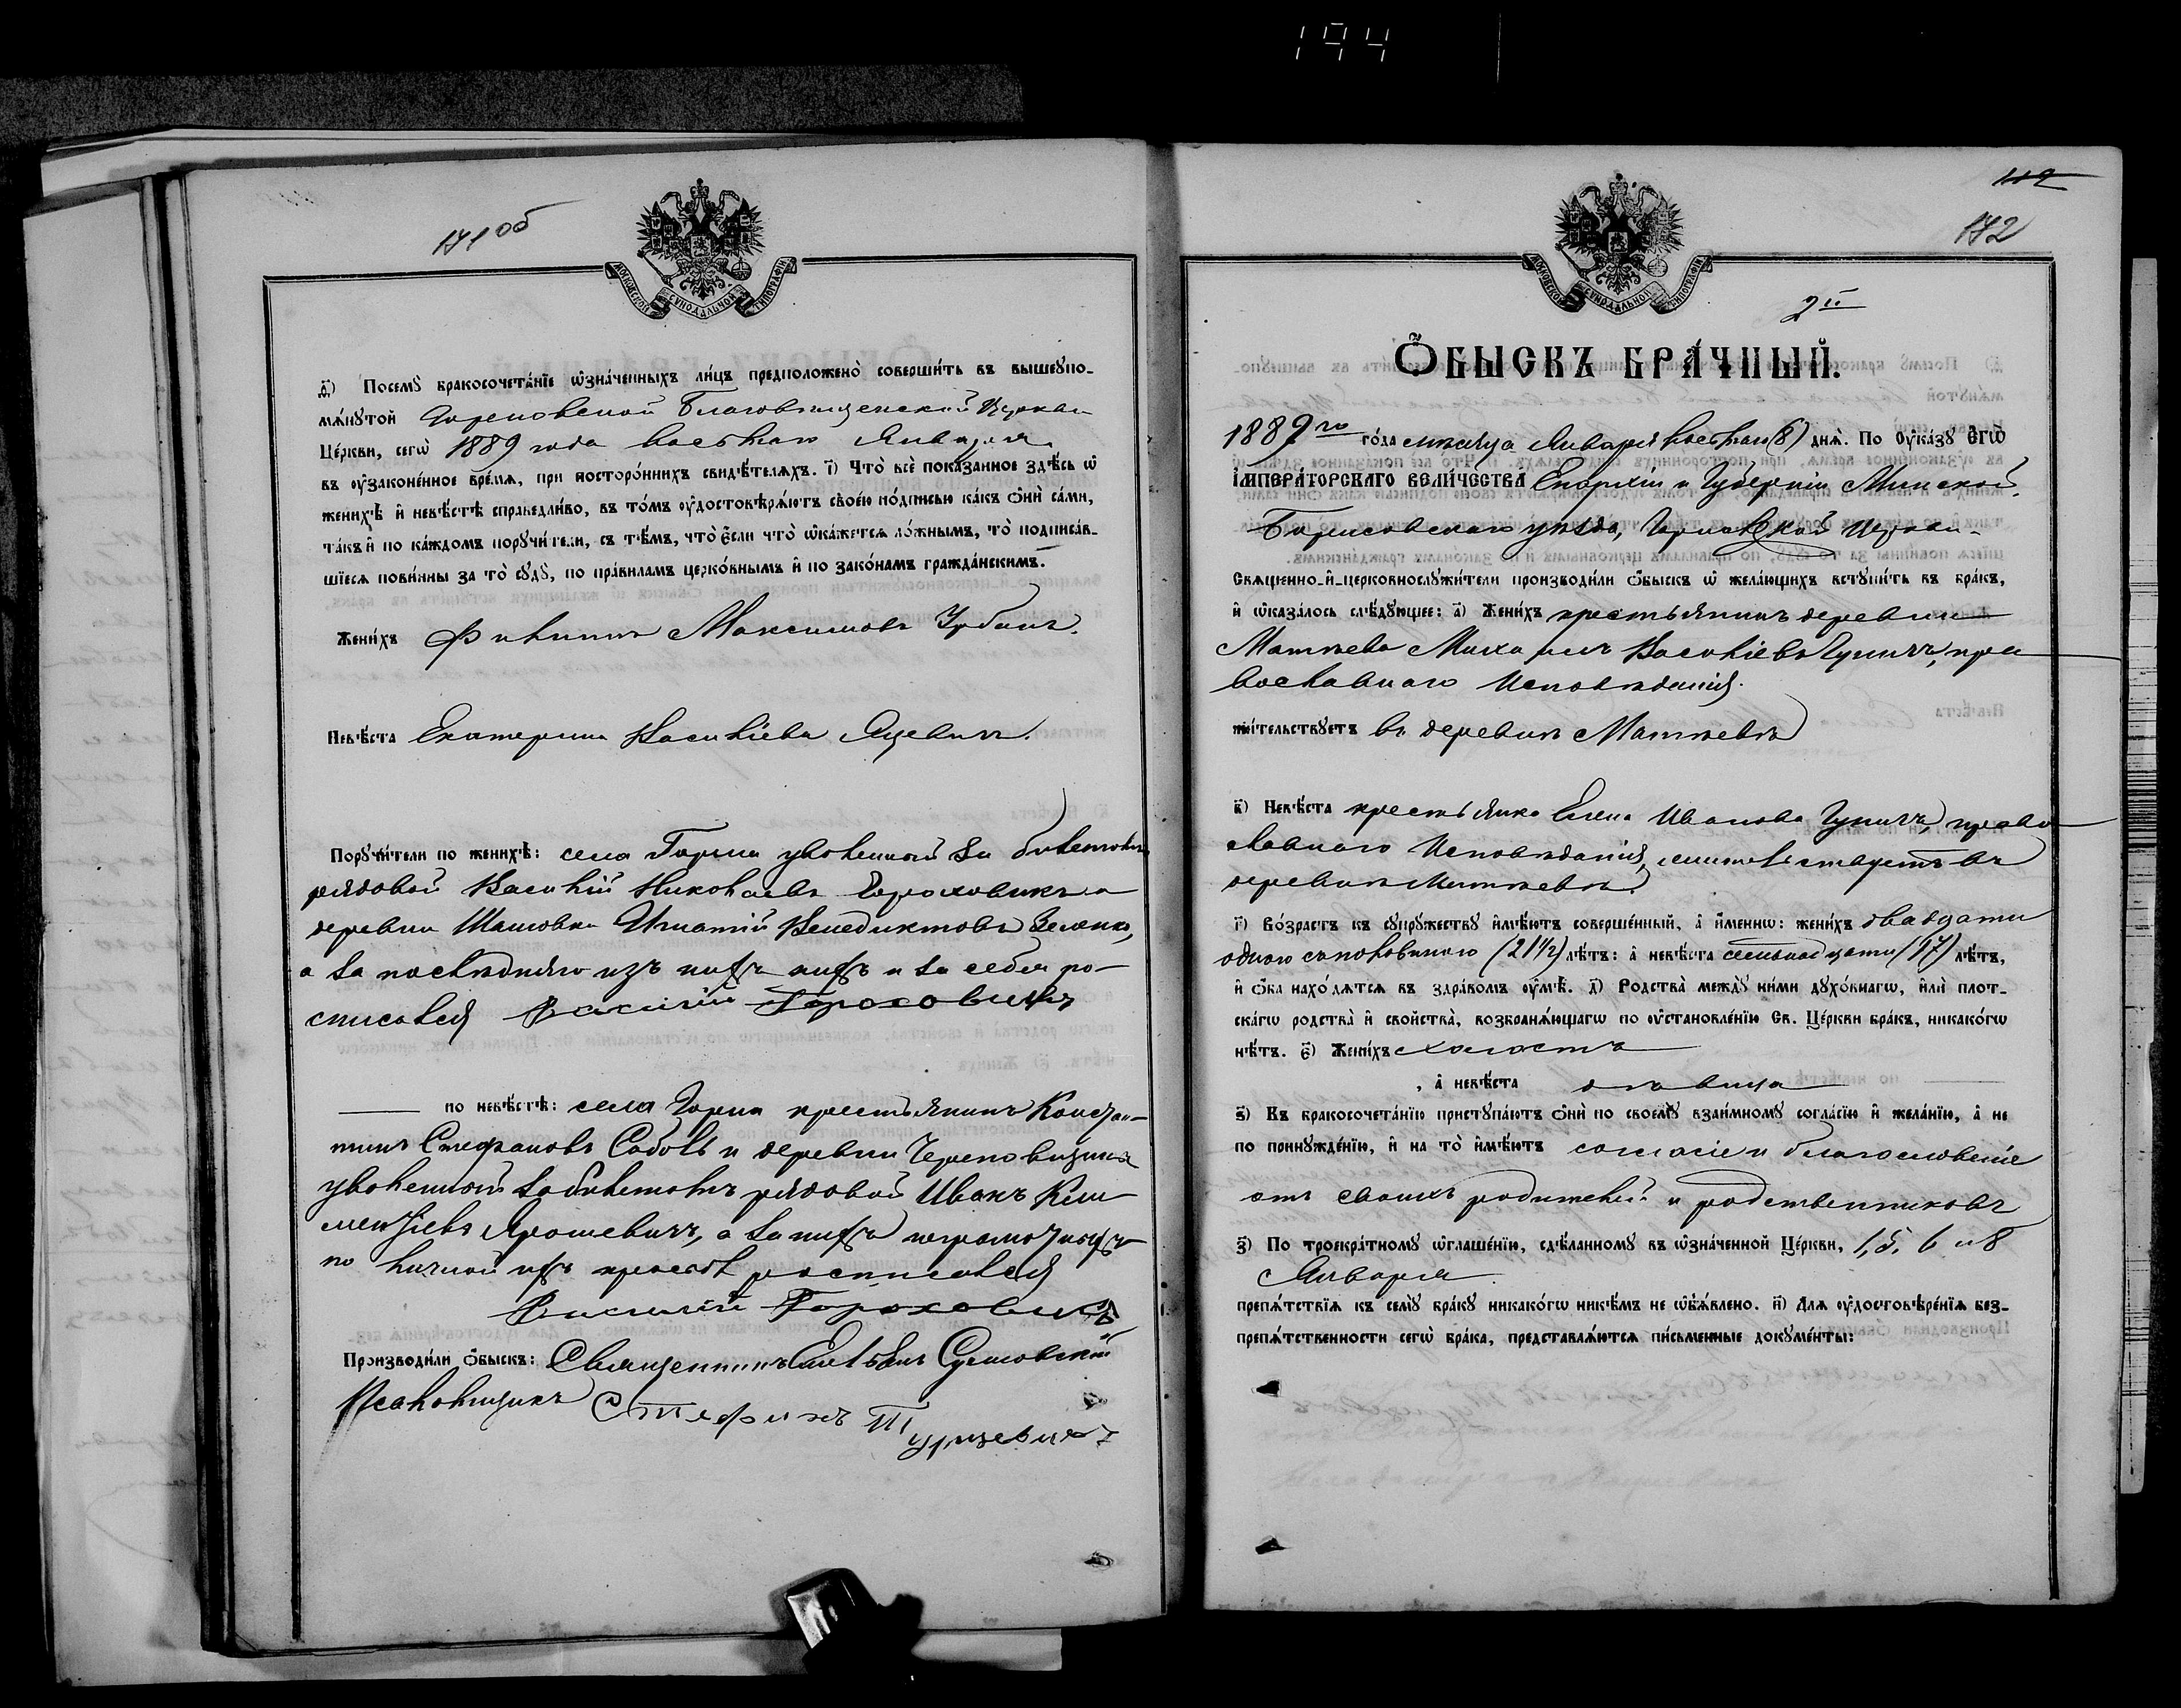 194
171 об
МОСКОВСКОЙ СѴНОДАЛЬНОЙ ТИПОГРАФІИ
д҃і) Посемꙋ̀ бракосочета́нїе ѡ҆зна́ченныхъ ли́цъ предположено̀ соверши́ть въ вышеꙋпо-
мѧ́нꙋтой Горенской Благовѣщенской Церкви
Це́ркви, сегѡ̀ 1889 года восьмаго Января
въ ᲂу҆законе́нное вре́мѧ, при посторо́ннихъ свидѣ́телѧхъ. і҃) Что̀ всѐ пока́занное здѣ́сь ѡ҆
женихѣ̀ и҆ невѣ́стѣ справедли́во, въ то́мъ ᲂу҆достовѣрѧ́ютъ свое́ю по́дписью ка́къ ѻ҆нѝ са́ми,
та́къ и҆ по ка́ждомъ порꙋчи́тели, съ тѣ́мъ, что̀ є҆́сли что̀ ѡ҆ка́жетсѧ ло́жнымъ, то̀ подписа́в-
шїесѧ пови́нны за то̀ сꙋдꙋ̀, по пра́виламъ церко́внымъ и҆ по зако́намъ гражда́нскимъ.
Жени́хъ Филиппъ Максимовъ Урбанъ.
Невѣ́ста Екатерина Васильева Яцевичъ.
Порꙋчи́тели по женихѣ̀: села Горна уволенный за билетомъ
рядовой Василій Николаевъ Гороховикъ и
деревни Игнатій Венедиктовъ
а за послѣдняго изъ нихъ и за себя ро-
списался Василій Гороховикъ
по невѣ́стѣ: села Горна крестьянинъ Констан-
тинъ Стефановъ Соболь и деревни
уволенный за билетомъ рядовой Иванъ Кли-
ментьевъ Ярошевичъ, а за нихъ неграмотныхъ
по личной ихъ просьбѣ росписался
Василій Гороховикъ
Производи́ли ѻ҆́быскъ: Священникъ
Псаломщикъ Стефанъ Турцевичъ
112
172
МОСКОВСКОЙ СѴНОДАЛЬНОЙ ТИПОГРАФІИ
2й
Ѻ҆́БЫСКЪ БРА́ЧНЫЙ.
1889го го́да мѣсяца Января восьмаго (8) днѧ̀. По ᲂу҆ка́зꙋ Є҆гѡ̀
І҆МПЕРА́ТОРСКАГО ВЕЛИ́ЧЕСТВА Епархіи и Губерніи Минской,
Борисовскаго уѣзда, Церкви
Свѧще́нно-и҆-церковнослꙋжи́тели производи́ли ѻ҆́быскъ ѡ҆ жела́ющихъ встꙋпи́ть въ бра́къ,
и҆ ѡ҆каза́лось слѣ́дꙋющее: а҃) Жени́хъ крестьянинъ деревни
Матѣева Михаилъ Васильевъ пра-
вославнаго Исповѣданія.
жи́тельствꙋетъ въ деревнѣ Матѣевѣ
в҃) Невѣ́ста крестьянка Елена Иванова право-
славнаго Исповѣданія, жительствуетъ въ
деревнѣ Матѣевѣ.
г҃) Во́зрастъ къ сꙋпрꙋ́жествꙋ и҆мѣ́ютъ соверше́нный, а҆ и҆́меннѡ: жени́хъ двадцати
одного съ половиною (21½) лѣ́тъ: а҆ невѣ́ста семьнадцати (17) лѣ́тъ,
и҆ ѻ҆́ба нахо́дѧтсѧ въ здра́вомъ ᲂу҆мѣ̀. д҃) Родства̀ междꙋ̀ ни́ми дꙋхо́внагѡ, и҆лѝ плот-
ска́гѡ родства̀ и҆ сво́йства̀, возбранѧ́ющагѡ по ᲂу҆становле́нїю Св. Це́ркви бра́къ, никако́гѡ
нѣ́тъ. є҃) Жени́хъ холостъ
, а҆ невѣ́ста дѣвица
ѕ҃) Къ бракосочета́нїю пристꙋпа́ютъ ѻ҆нѝ по своемꙋ̀ взаи́мномꙋ согла́сїю и҆ жела́нїю, а҆ не
по принꙋжде́нїю, и҆ на то̀ и҆мѣ́ютъ согласіе и благословеніе
отъ своихъ родителей и родственниковъ
з҃) По троекра́тномꙋ ѡ҆глаше́нїю, сдѣ́ланномꙋ въ ѡ҆зна́ченной Це́ркви, 1, 6 и 8
Января
препѧ́тствїѧ къ семꙋ̀ бра́кꙋ никако́гѡ никѣ́мъ не ѡ҆б̾ѧ́влено. и҃) Длѧ ᲂу҆достовѣре́нїѧ без-
препѧ́тственности сегѡ̀ бра́ка, представлѧ́ютсѧ пи́сьменные докꙋме́нты: